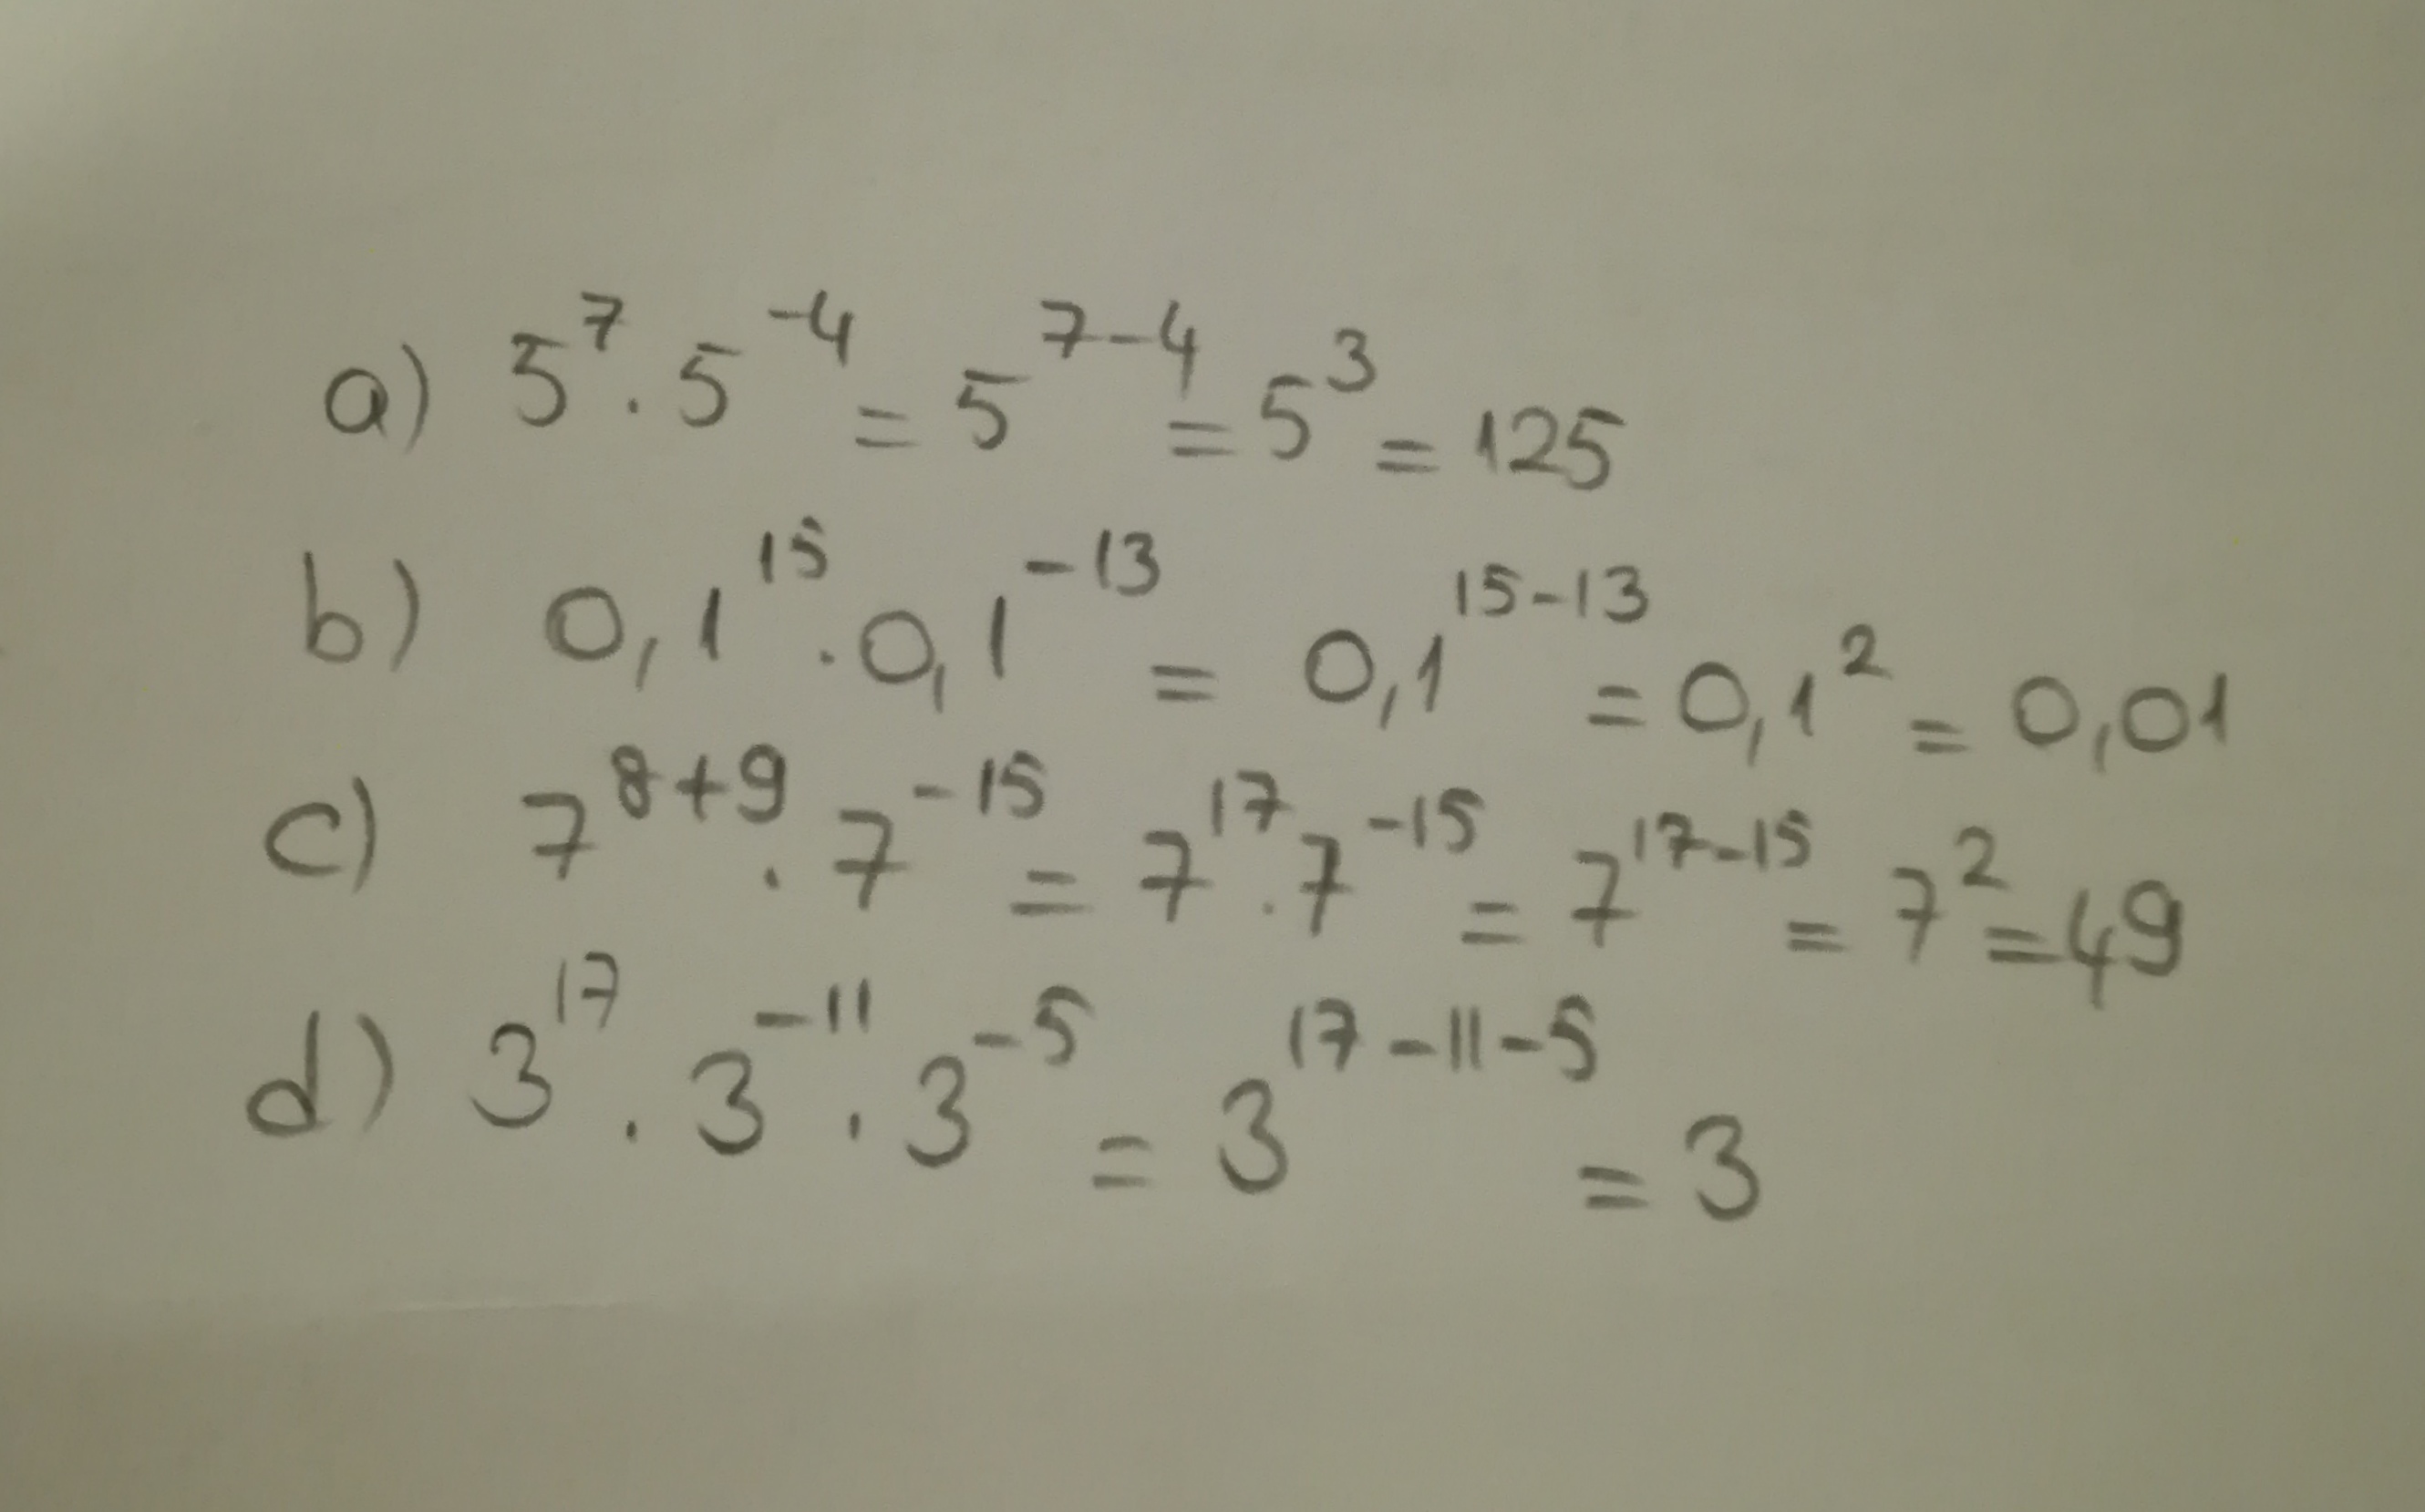 a) 5⁷ . 5⁻⁴ = 5⁷⁻⁴ = 5³ = 125
b) 0,1¹⁵ . 0,1⁻¹³ = 0,1¹⁵⁻¹³ = 0,1² = 0,01
c) 7⁸⁺⁹ . 7⁻¹⁵ = 7¹⁷ . 7⁻¹⁵ = 7¹⁷⁻¹⁵ = 7² = 49
d) 3¹⁷ . 3⁻¹¹ . 3⁻⁵ = 3¹⁷⁻¹¹⁻⁵ = 3